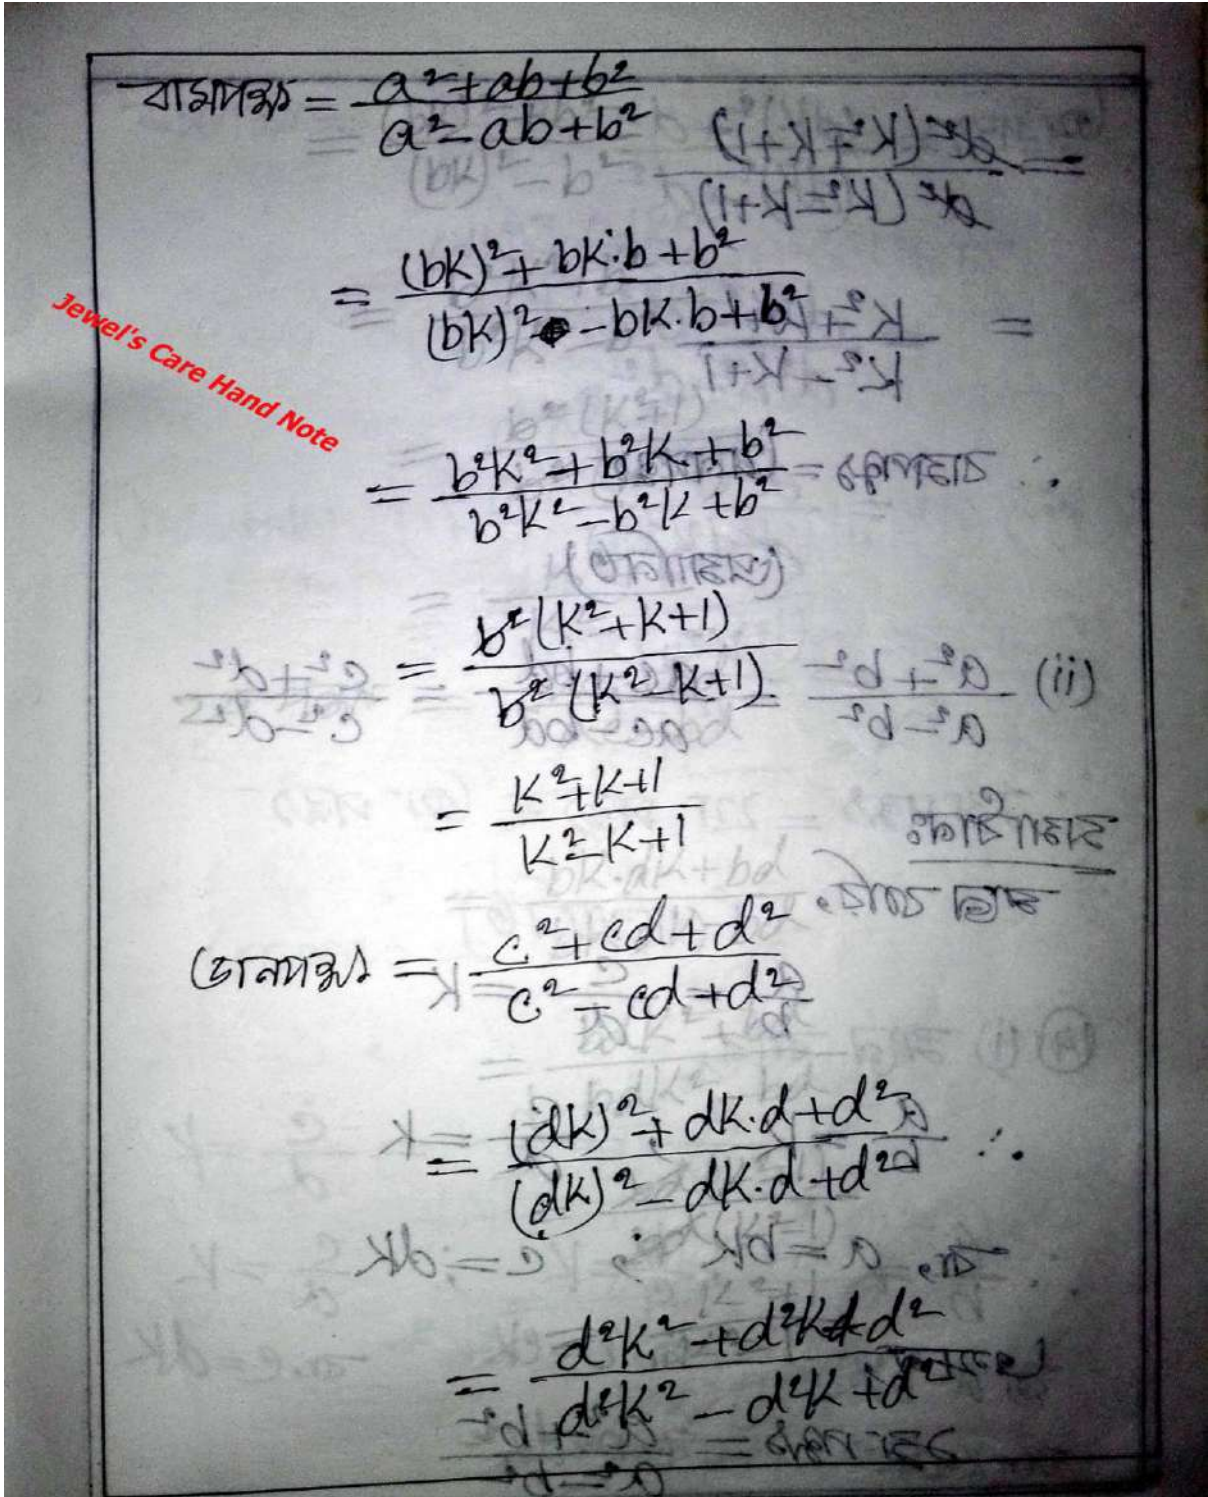 বামপক্ষ = \frac{a²+ab+b²}{a²-ab+b²}
= \frac{(bk)²+bk·b+b²}{(bk)²-bk·b+b²}
Jewel's Care Hand Note
= \frac{b²k²+b²k+b²}{b²k²-b²k+b²}
= \frac{b²(k²+k+1)}{b²(k²-k+1)}
= \frac{k²+k+1}{k²-k+1}
ডানপক্ষ = \frac{c²+cd+d²}{c²-cd+d²}
= \frac{(dk)²+dk·d+d²}{(dk)²-dk·d+d²}
= \frac{d²k²+d²k+d²}{d²k²-d²k+d²}